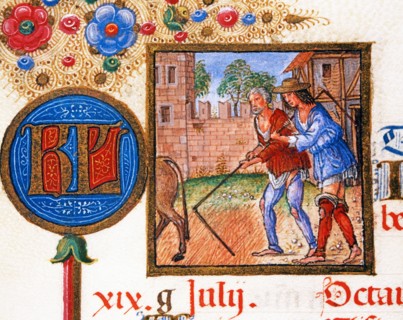 KL
be
xix. g Julij. Octau